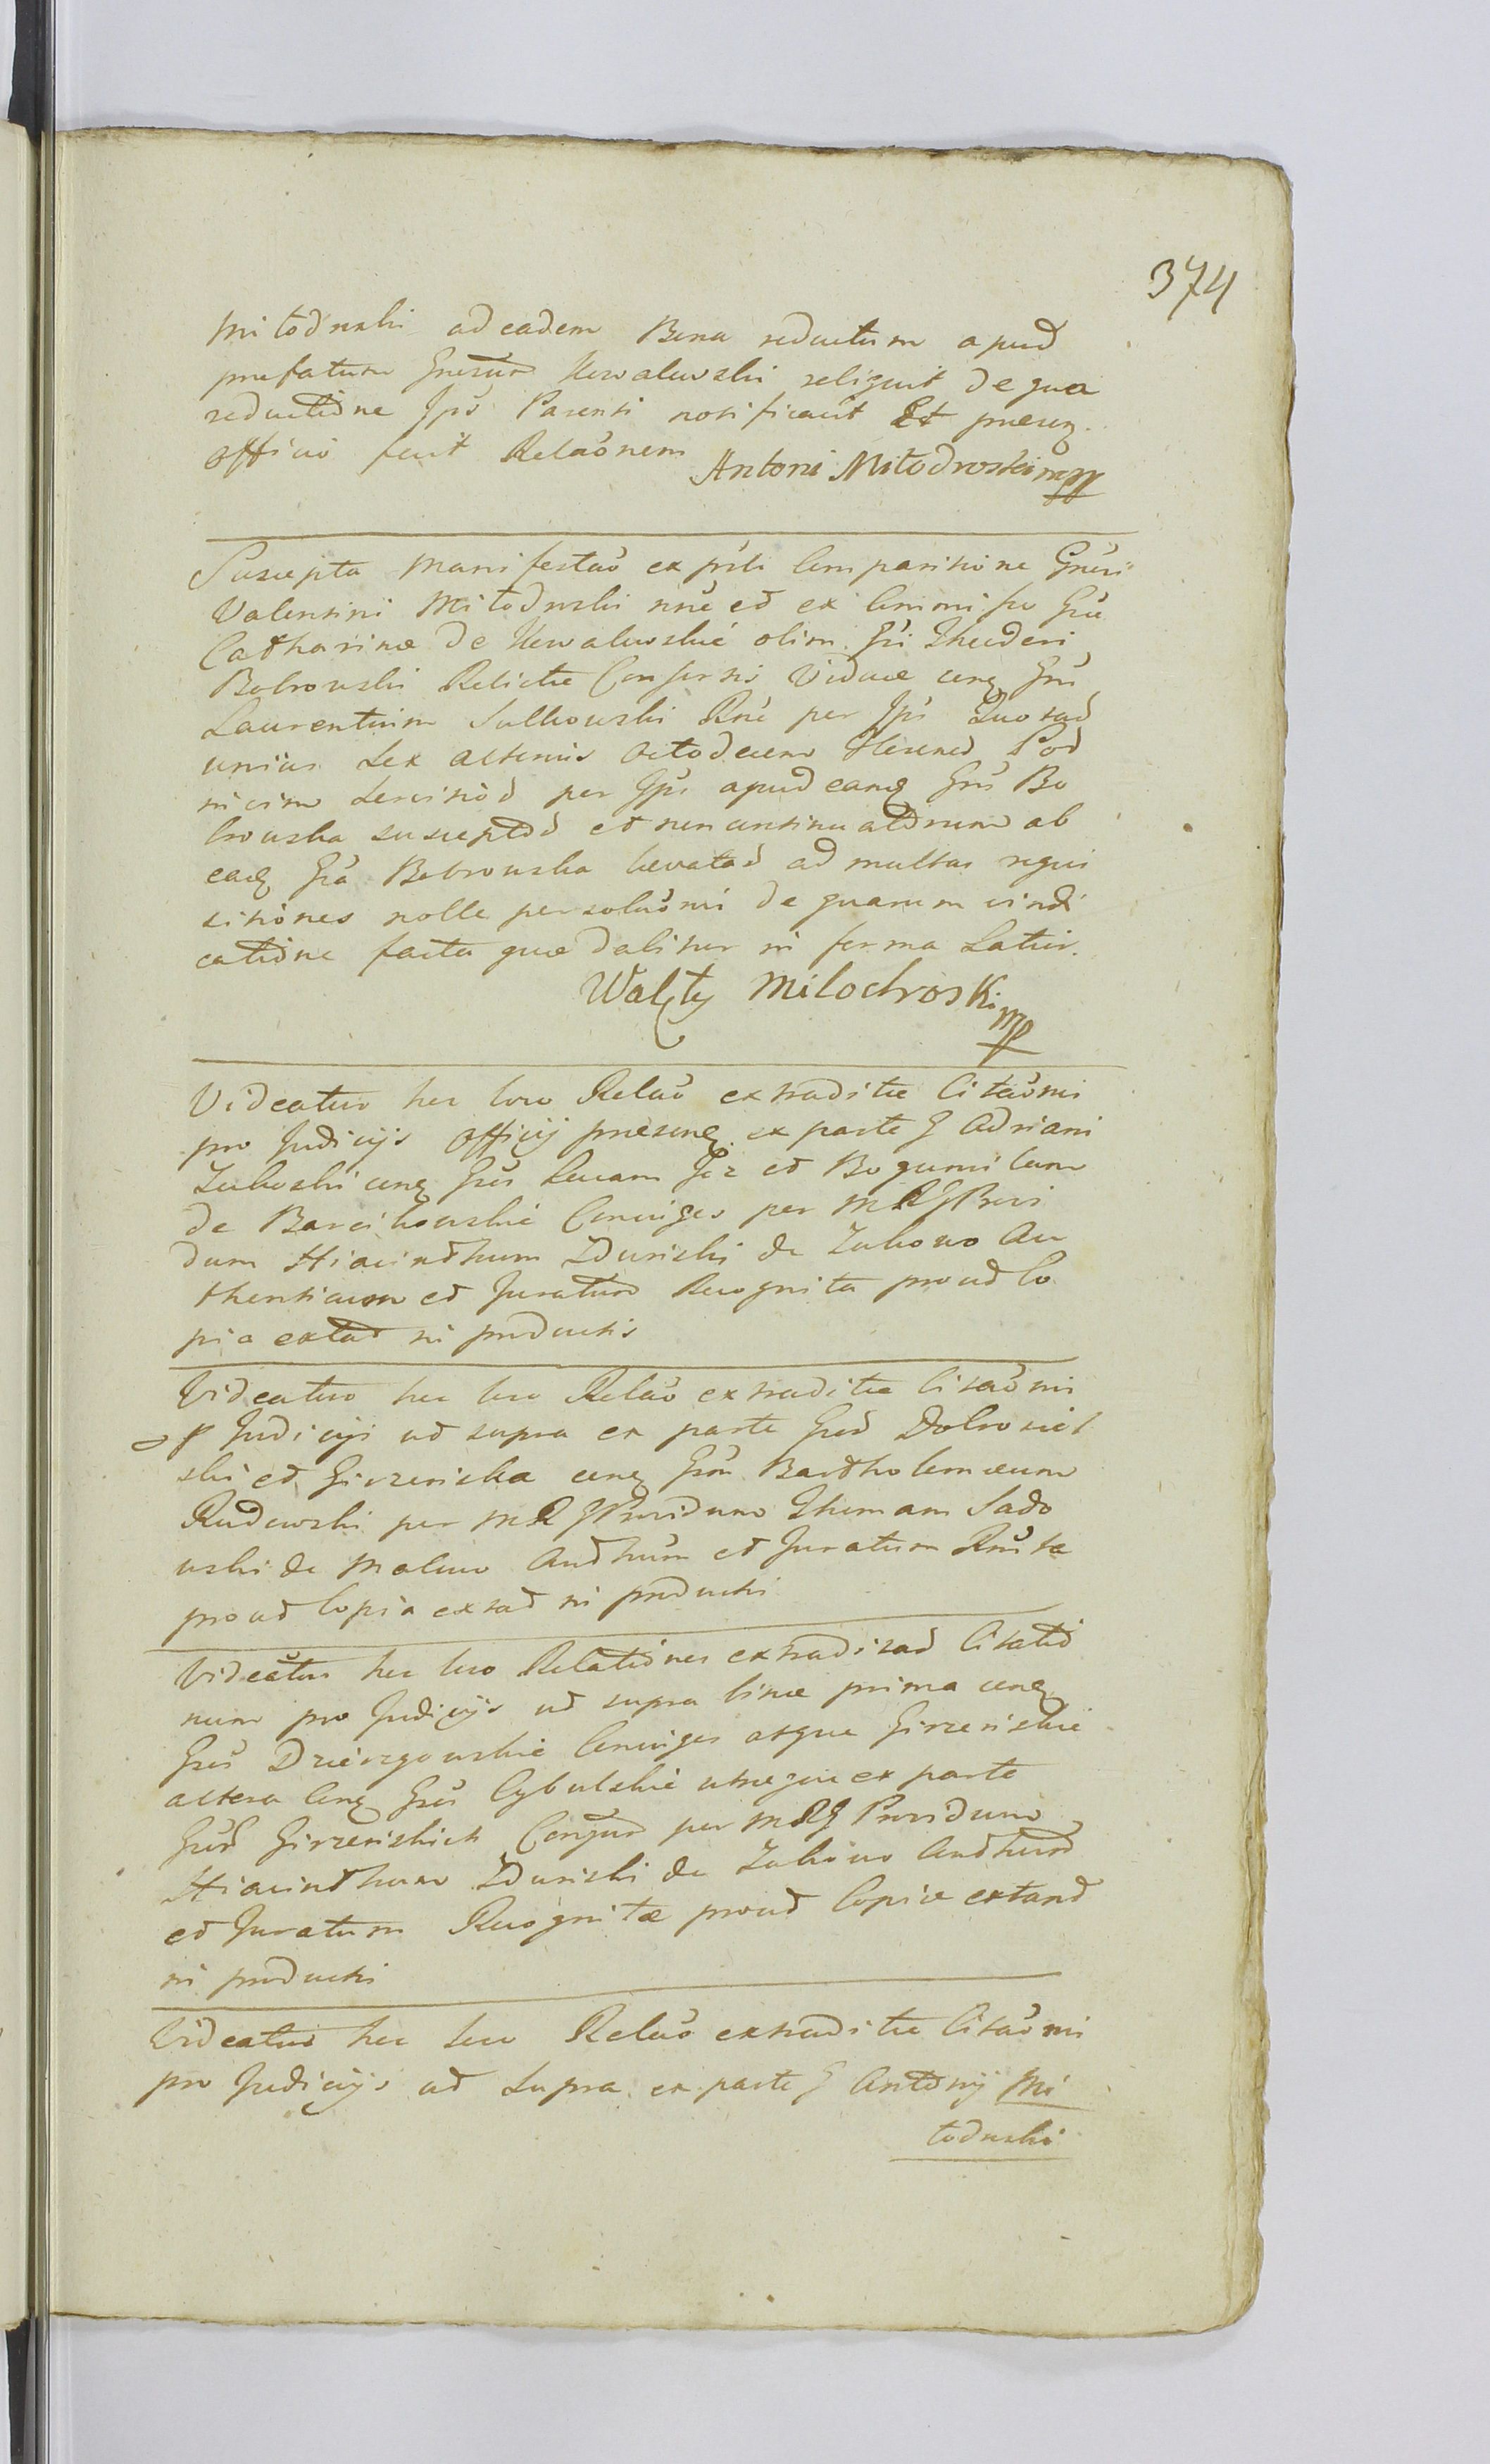 374
Miłodroski ad eadem Bona reductum apud
prefatum Gnerūm Kowalewski reliquit de qua
reductione Ipsi Parenti notificavit Et pñteq.
Officio fecit Relaõnem
Antoni Miłodroski mpp
Suscepta Manifestaõ ex psli Comparitione Gnesi
Valentini Miłodroski nñe et ex Commisso Gse
Catharinæ de Kowalewskie olim Gsi Theodori
Bobrowski Relictæ Consortis Viduæ cenq Gsm
Laurentium Sulkowski Rne per Ipsi
unius Sex alterius Octodecem
per Ipsi apud eamq Gsm Bo
browska susceptod et ab
eadq Gsa Bobrowska levatad ad multas requi
sitiones nolle persolvõni de quarum vindi
catione facta quæ dabitur in forma Latior.
Walęty Milochroski mp
Videatur hec loco Relaõ extraditæ Citaõnis
pro Judicijs Officij præsenq ex parte G Adriani
Zukoski cenq Gsos Lucam Giz et Bogumilam
de Barcikowskie Conjuges per MRG Provi
dum Hiacinthum Zdunski de Zukowo Au
thenticum et Juratum Recognita prout Co
pia extat in productis
Videatur hec loco Relaõ extraditæ Citaõnis
p Judicijs ut supra ex parte Gsod Dobrosiel
ski et Girzenska cenq Gsm Bartholomæum
Rudowski per MRG Providum Thomam Sado
wski de Malewo Authum et Juratum Rnita
prout Copia extat in productis
Videatur hec loco Relationes extraditad Citatio
num pro Judicijs ut supra binæ prima cenq
Gsos Dzierzgowskie Conjuges atque Girzenskie
altera Cenq Gsos Cybulskie utraque ex parte
Gsod Girzenskich Conjūm per MRG Providum
Hiacinthum Zdunski de Zukowo Authum
et Juratum Recognitæ prout Copiæ extant
in productis
Videatur hec loco Relaõ extraditæ Citaõnis
pro Judicijs ut supra ex parte G Antonij Mi
łodroski